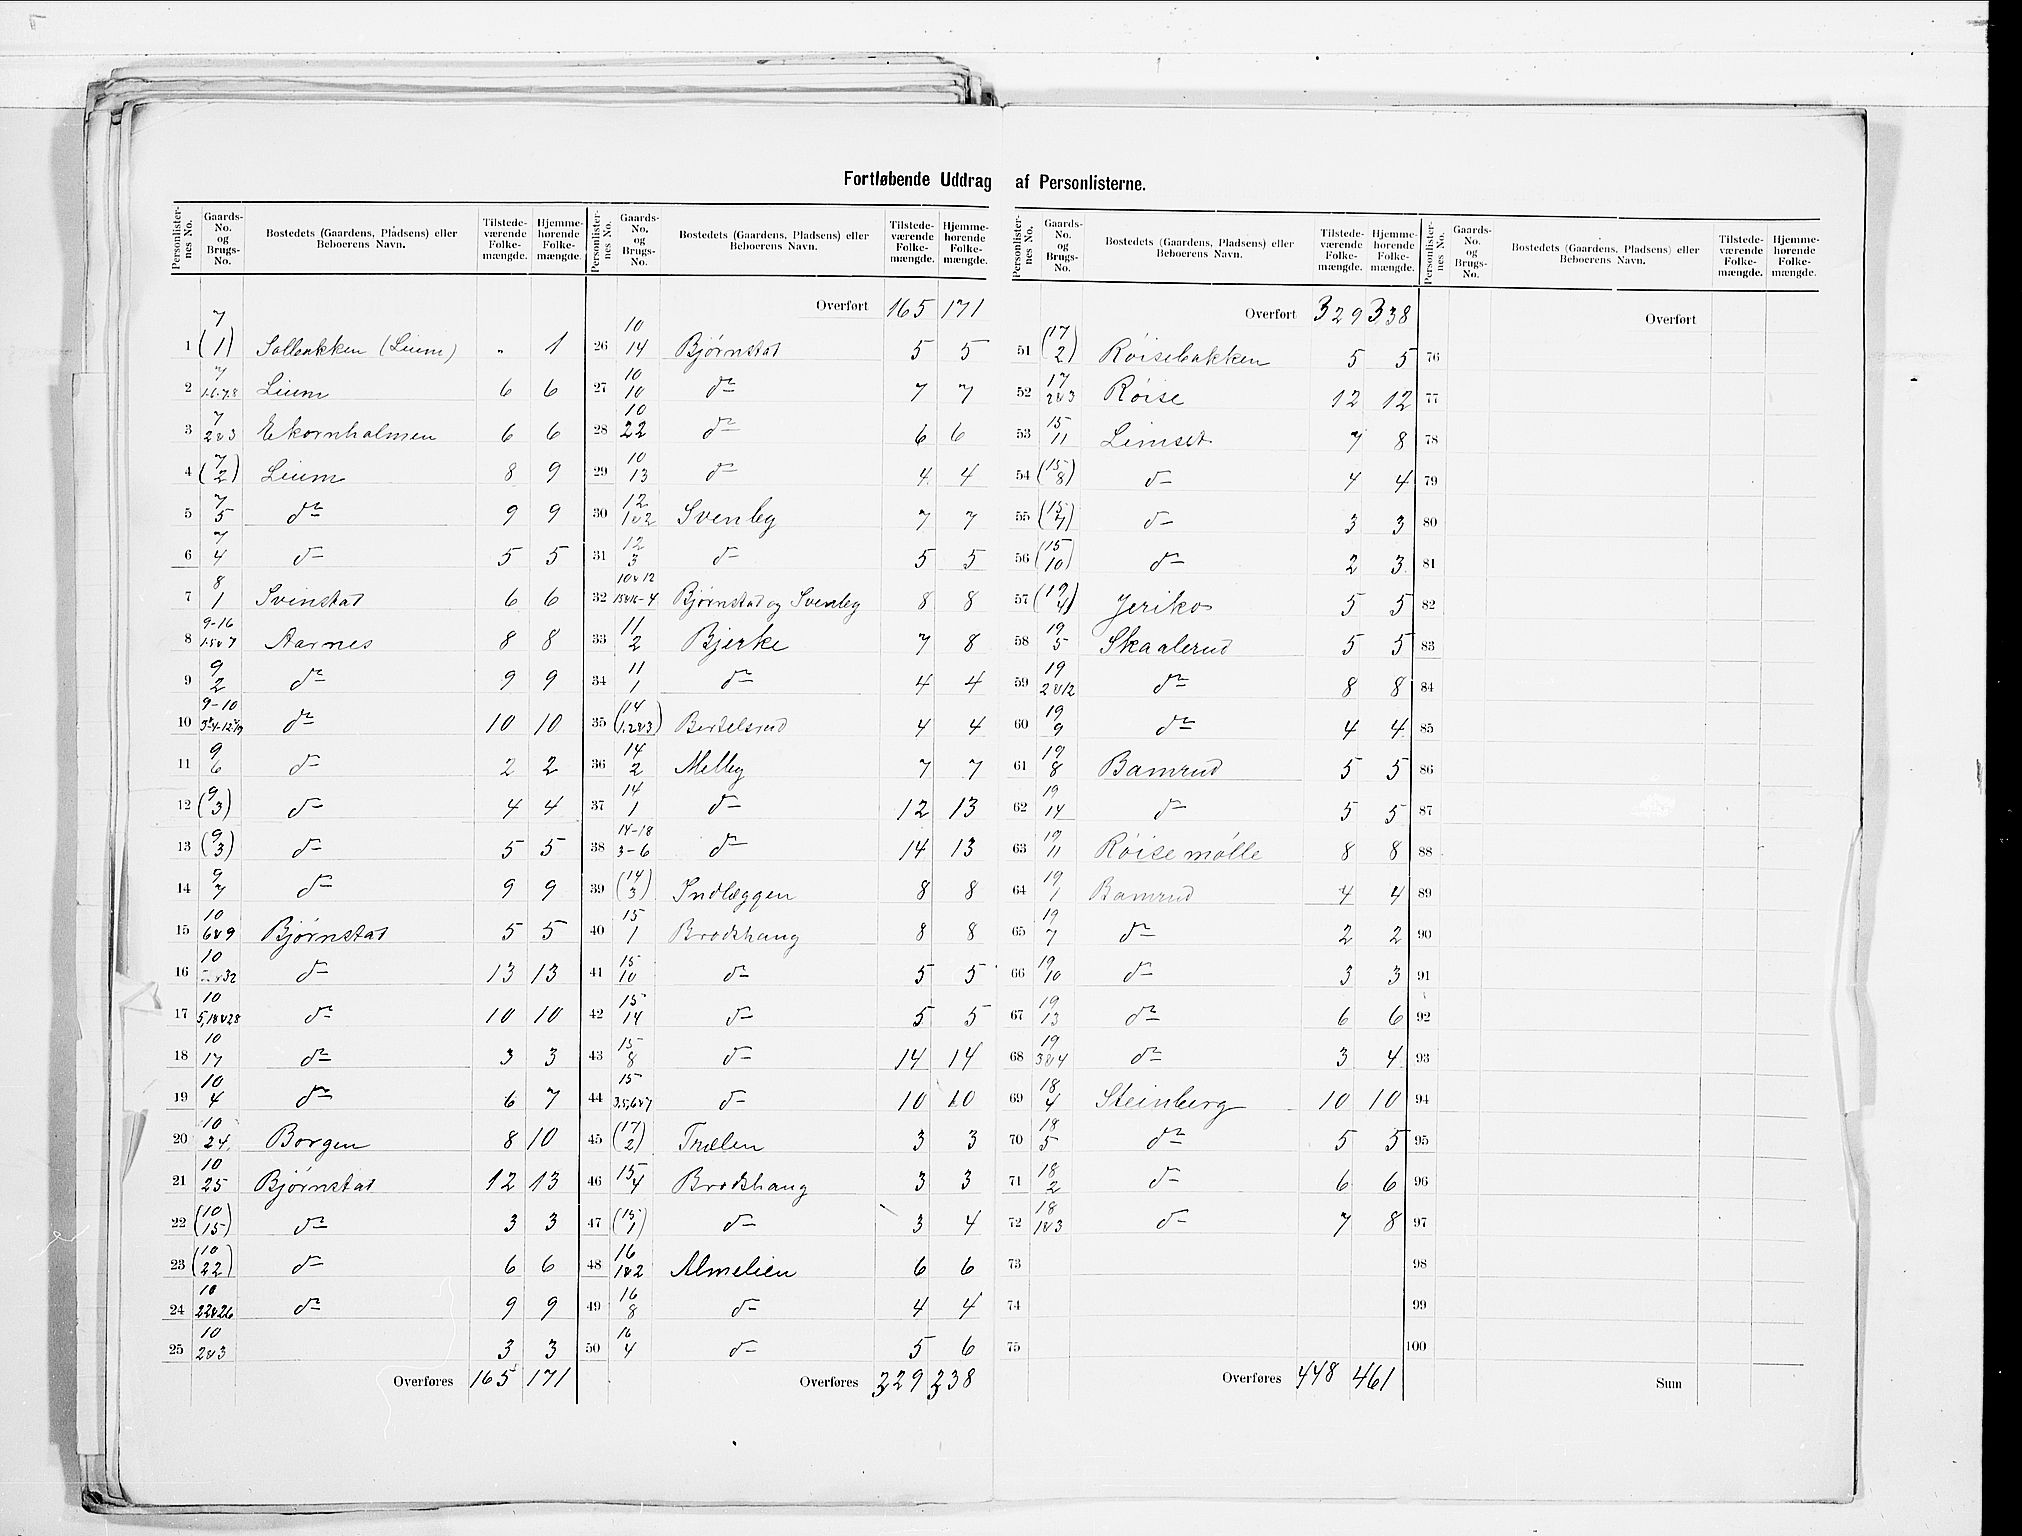 Fortløbende Uddrag af Personlisterne.
Personlister-nes No. | Gaards-No. og Brugs-No. | Bostedets (Gaardens, Pladsens) eller Beboerens Navn. | Tilstede-værende Folke-mængde. | Hjemme-hørende Folke-mængde.
1 (7/1) Solbakken (Lium) " 1
2 7/1.6.7.8 Lium 6 6
3 7/2&3 Ekornholmen 6 6
4 (7/2) Lium 8 9
5 7/5 do 9 9
6 7/4 do 5 5
7 8/1 Svinstad 6 6
8 9-16/1.5&7 Aarnes 8 8
9 9/2 do 9 9
10 9-10 do 10 10
11 9/6 do 2 2
12 (9/3) do 4 4
13 (9/3) do 5 5
14 9/7 do 9 9
15 10/6&9 Bjørnstad 5 5
16 10 do 13 13
17 10/5,18&28 do 10 10
18 10/17 do 3 3
19 10/4 do 6 7
20 10/24 Borgen 8 10
21 10/25 Bjørnstad 12 13
22 (10/15) do 3 3
23 (10/22) do 6 6
24 10/22&26 do 9 9
25 10/2&3 3 3
Overføres 165 171
Personlister-nes No. | Gaards-No. og Brugs-No. | Bostedets (Gaardens, Pladsens) eller Beboerens Navn. | Tilstede-værende Folke-mængde. | Hjemme-hørende Folke-mængde.
Overført 165 171
26 10/14 Bjørnstad 5 5
27 10/10 do 7 7
28 10/22 do 6 6
29 10/13 do 4 4
30 12/1&2 Svenby 7 7
31 12/3 do 5 5
32 10&12/15&16-4 Bjørnstad og Svenby 8 8
33 11/2 Bjerke 7 8
34 11/1 do 4 4
35 (14/1.2&3) Bertelsrud 4 4
36 14/2 Melby 7 7
37 14/1 do 12 13
38 14-18/3-6 do 14 13
39 (14/3) Indlæggen 8 8
40 15/1 Brodshaug 8 8
41 15/10 do 5 5
42 15/14 do 5 5
43 15/8 do 14 14
44 15/3,5,6&7 do 10 10
45 (17/2) Trælen 3 3
46 15/4 Brodshaug 3 3
47 (15/1) do 3 4
48 16/1&2 Almelien 6 6
49 16/8 do 4 4
50 16/4 do 5 6
Overføres 329 338
Personlister-nes No. | Gaards-No. og Brugs-No. | Bostedets (Gaardens, Pladsens) eller Beboerens Navn. | Tilstede-værende Folke-mængde. | Hjemme-hørende Folke-mængde.
Overført 329 338
51 (17/2) Røisebakken 5 5
52 17/2&3 Røise 12 12
53 15/11 Limset 7 8
54 (15/8) do 4 4
55 (15/7) do 3 3
56 (15/10) do 2 3
57 (19/4) Jeriko 5 5
58 19/5 Skaalerud 5 5
59 19/2&12 do 8 8
60 19/9 do 4 4
61 19/8 Bamrud 5 5
62 19/14 do 5 5
63 19/11 Røise mølle 8 8
64 19/1 Bamrud 4 4
65 19/7 do 2 2
66 19/10 do 3 3
67 19/13 do 6 6
68 19/3&4 do 3 4
69 18/4 Steinberg 10 10
70 18/5 do 5 5
71 18/2 do 6 6
72 18/1&3 do 7 8
73
74
75
Overføres 448 461
Personlister-nes No. | Gaards-No. og Brugs-No. | Bostedets (Gaardens, Pladsens) eller Beboerens Navn. | Tilstede-værende Folke-mængde. | Hjemme-hørende Folke-mængde.
Overført
76
77
78
79
80
81
82
83
84
85
86
87
88
89
90
91
92
93
94
95
96
97
98
99
100
Sum